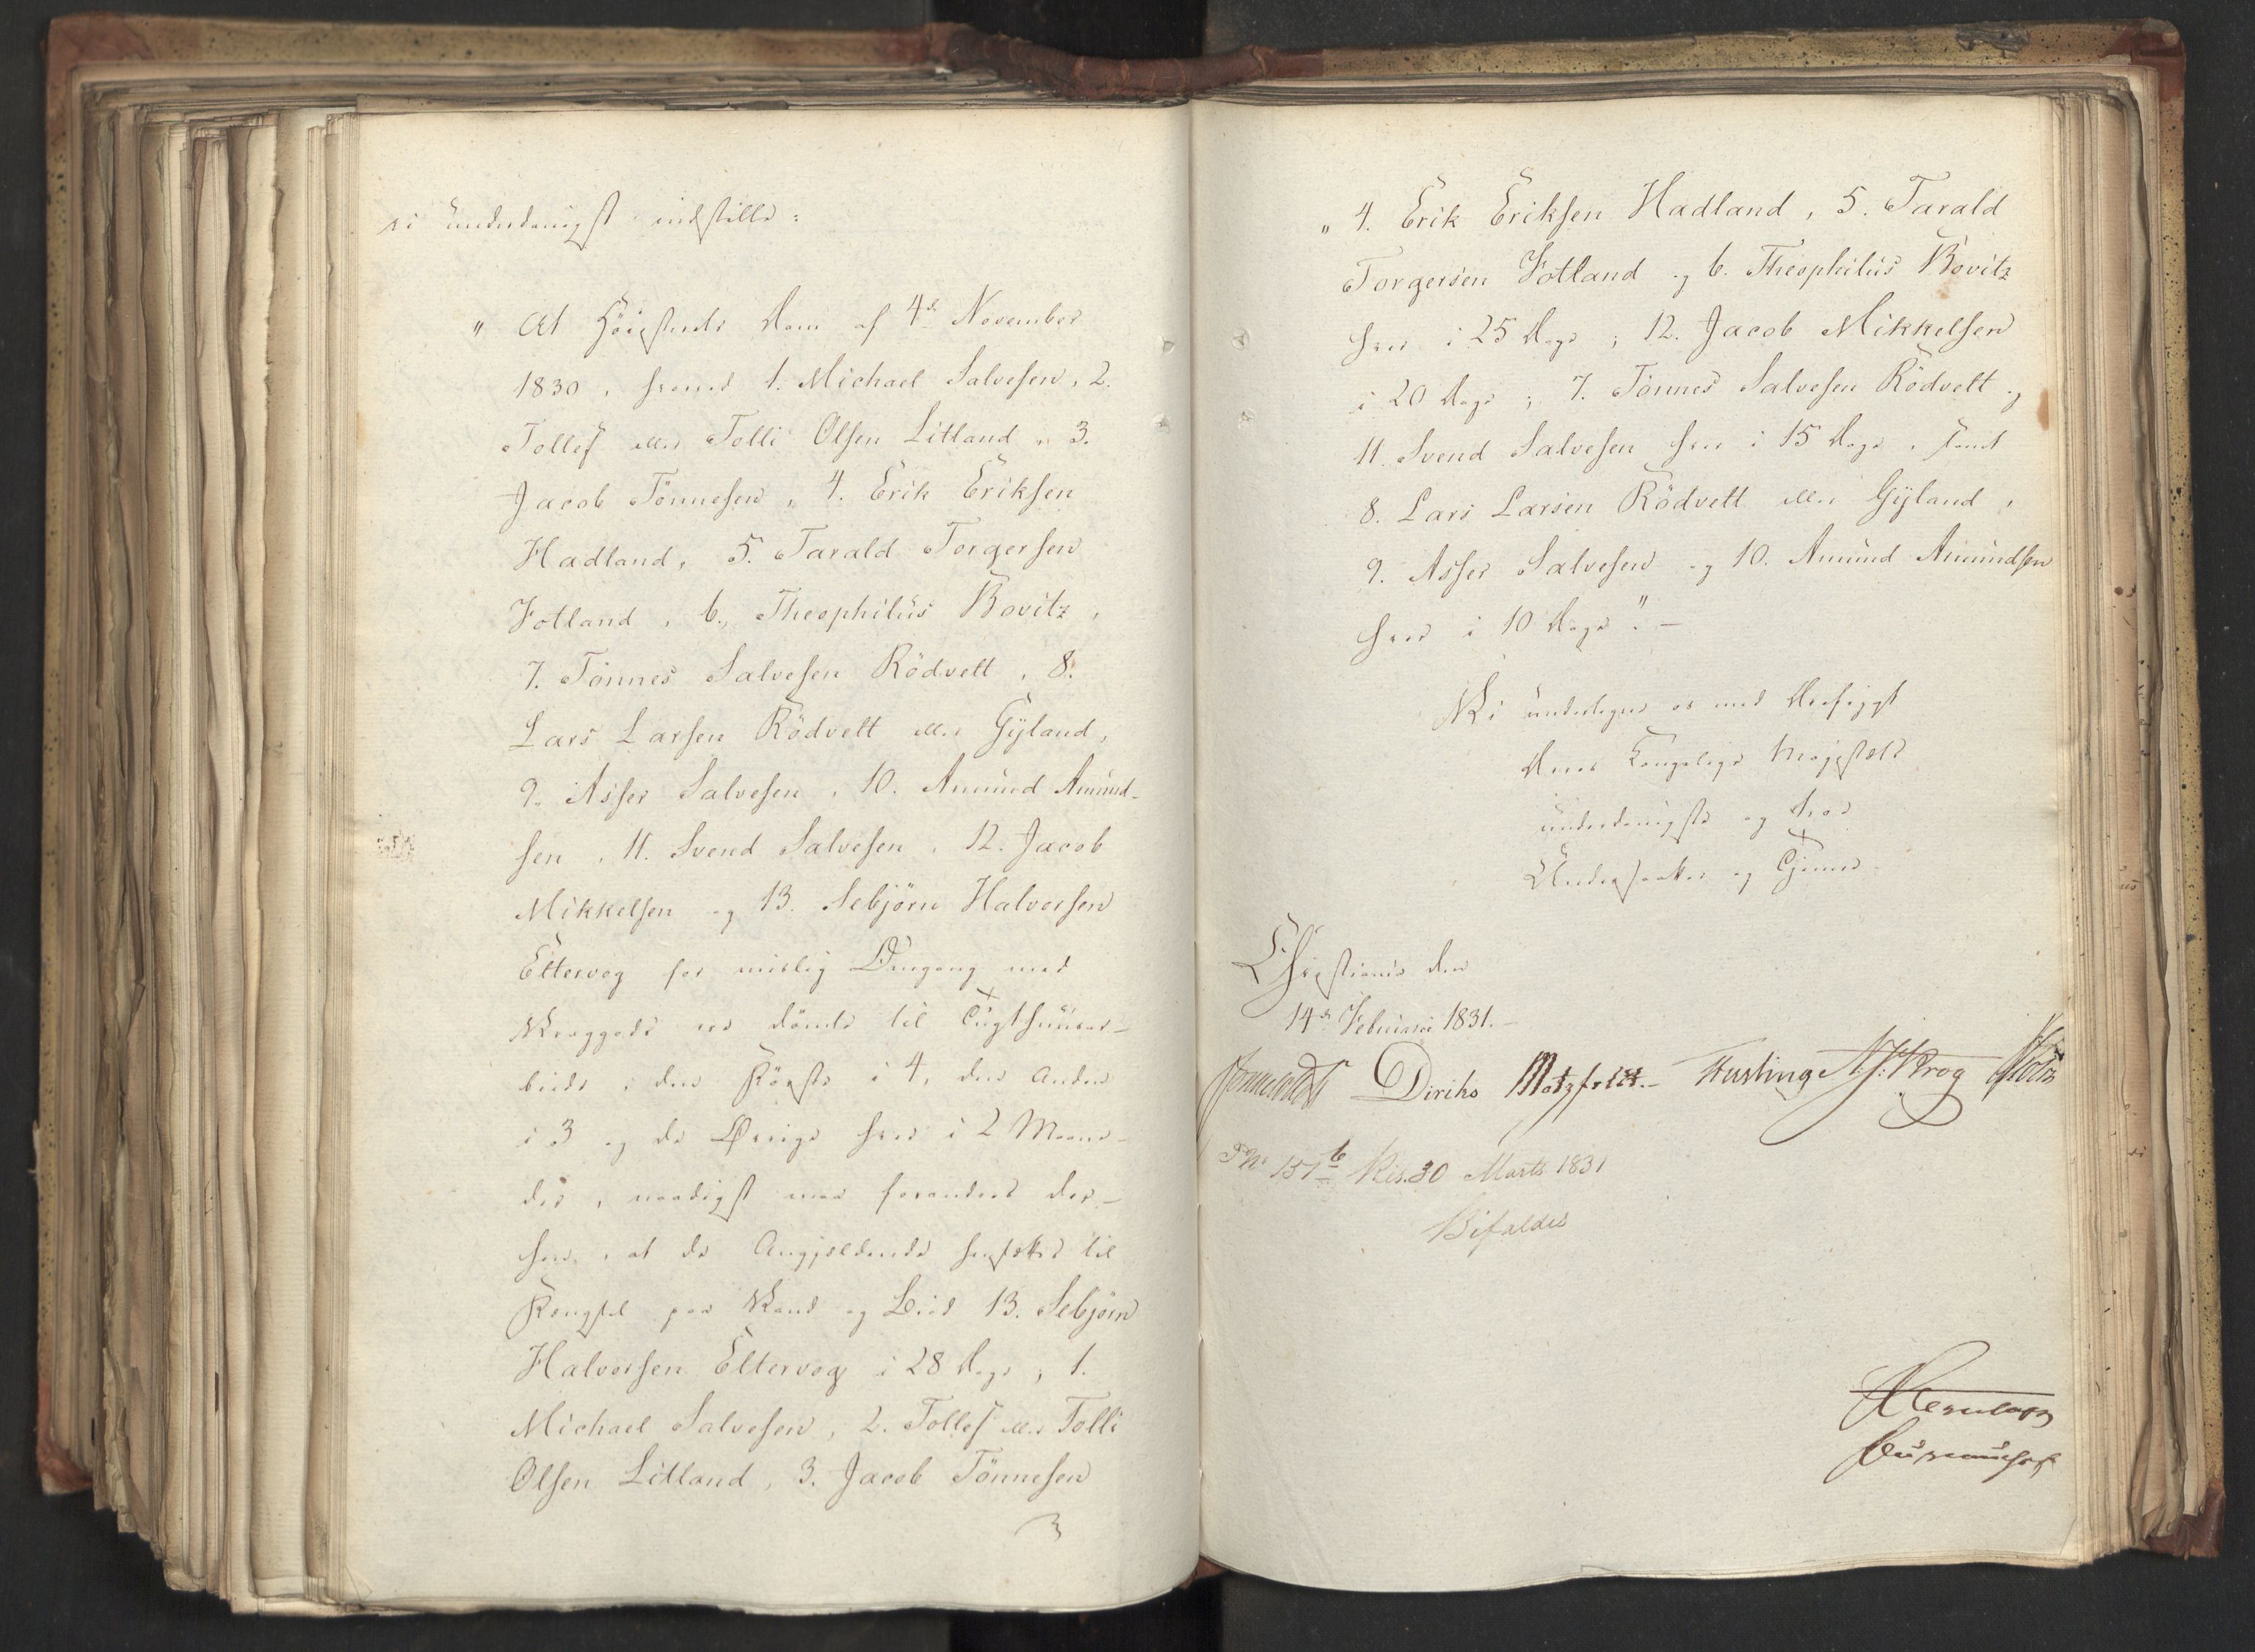 vi underdanigst indstille:
" At Höiesterets Dom af 4de November
1830, hvorved 1. Michael Salvesen, 2.
Tollef eller Tolli Olsen Litland, 3.
Jacob Tönnesen, 4. Erik Eriksen
Hadland, 5. Tarald Torgersen
Fotland, 6. Theophilus Bovitz,
7. Tönnes Salvesen Rödvelt, 8.
Lars Larsen Rödvelt eller Gyland,
9. Asser Salvesen, 10. Amund Amund-
sen, 11. Svend Salvesen, 12. Jacob
Mikkelsen og 13. Sebjörn Halvorsen
Eltervog for mislig Omgang med
Vraggods ere dömte til Tugthuusar-
beide, den Förste i 4, den Anden
i 3 og de Övrige hver i 2 Maane-
der, naadigst maa forandres der-
hen, at de Angjeldende hensættes til
Fængsel paa Vand og Bröd 13. Sebjörn
Halvorsen Eltervog i 28 Dage, 1.
Michael Salvesen, 2. Tollef eller Tolli
Olsen Litland, 3. Jacob Tönnesen
" 4. Erik Eriksen Hadland, 5. Tarald
Torgersen Fotland og 6. Theophilus Bovitz
hver i 25 Dage; 12. Jacob Mikkelsen
i 20 Dage; 7. Tönnes Salvesen Rödvelt og
11. Svend Salvesen hver i 15 Dage, samt
8. Lars Larsen Rödvelt eller Gyland,
9. Asser Salvesen og 10. Amund Amundsen
hver i 10 Dage". -
Vi undertegne os med Dybeste
Deres Kongelige Majestæts
underdanigste og troe
Undersaatter og Tjenere
Christiania den
14de Februar 1831. -
Sommerhielm Diriks Motzfeldt. - Fasting Krog Holst
No 151 b Res. 30 Marts 1831
Bifaldes